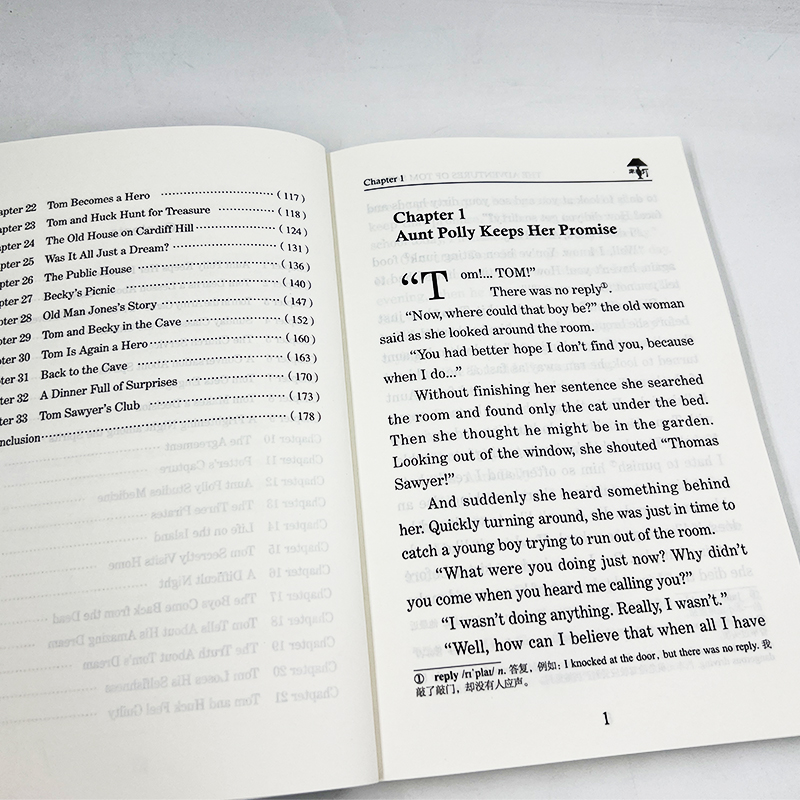 apter 22 Tom Becomes a Hero ······ ( 117 )
apter 23 Tom and Huck Hunt for Treasure ······ ( 118 )
apter 24 The Old House on Cardiff Hill ······ ( 124 )
apter 25 Was It All Just a Dream? ······ ( 131 )
apter 26 The Public House ······ ( 136 )
apter 27 Becky's Picnic ······ ( 140 )
apter 28 Old Man Jones's Story ······ ( 147 )
apter 29 Tom and Becky in the Cave ······ ( 152 )
apter 30 Tom Is Again a Hero ······ ( 160 )
apter 31 Back to the Cave ······ ( 163 )
apter 32 A Dinner Full of Surprises ······ ( 170 )
apter 33 Tom Sawyer's Club ······ ( 173 )
nclusion ······ ( 178 )
Chapter 1
Chapter 1
Aunt Polly Keeps Her Promise
“Tom!... TOM!”
There was no reply①.
“Now, where could that boy be?” the old woman
said as she looked around the room.
“You had better hope I don't find you, because
when I do...”
Without finishing her sentence she searched
the room and found only the cat under the bed.
Then she thought he might be in the garden.
Looking out of the window, she shouted “Thomas
Sawyer!”
And suddenly she heard something behind
her. Quickly turning around, she was just in time to
catch a young boy trying to run out of the room.
“What were you doing just now? Why didn't
you come when you heard me calling you?”
“I wasn't doing anything. Really, I wasn't.”
“Well, how can I believe that when all I have
① reply /rɪˈplaɪ/ n. 答复，例如：I knocked at the door, but there was no reply. 我
敲了敲门，却没有人应声。
1